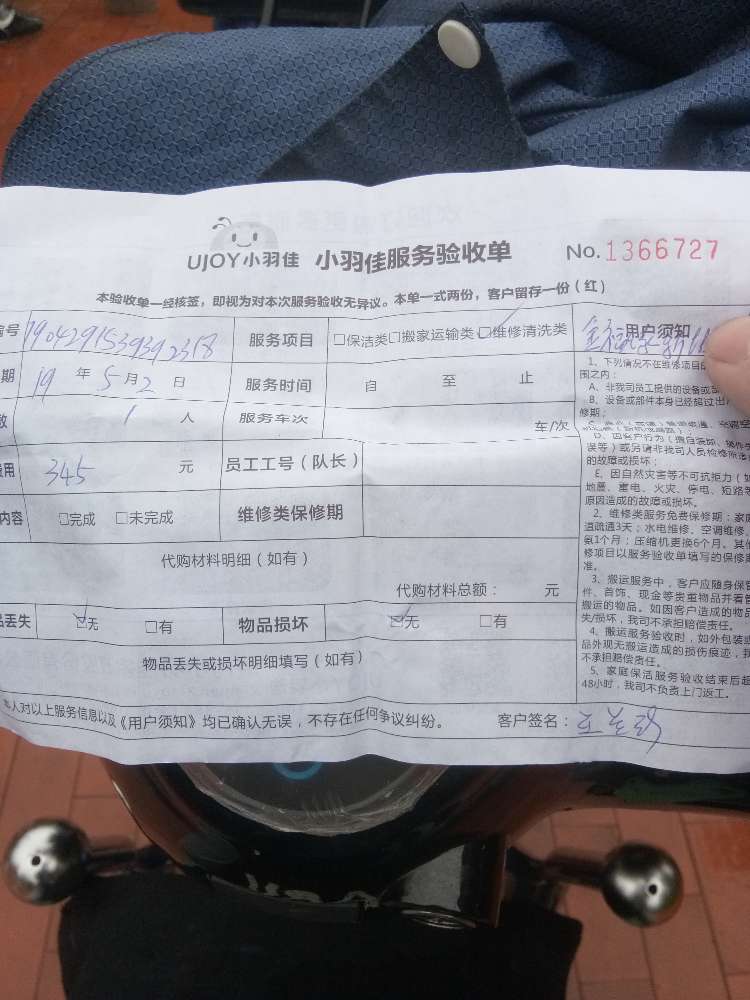 UJOY小羽佳 小羽佳服务验收单 No.1366727
本验收单一经核签，即视为对本次服务验收无异议。本单一式两份，客户留存一份（红）
号 1904291539392318 服务项目 □保洁类□搬家运输类☑维修清洗类 用户须知
期 19 年 5月2 日 服务时间 自 至 止
数 1 人 服务车次 车/次
费用 345 元 员工工号（队长）
内容 □完成 □未完成 维修类保修期
代购材料明细（如有）
代购材料总额： 元
品丢失 ☑无 □有 物品损坏 ☑无 □有
物品丢失或损坏明细填写（如有）
本人对以上服务信息以及《用户须知》均已确认无误，不存在任何争议纠纷。 客户签名：
1、下列情况不在维修项目
围之内：
A、非我司员工提供的设备或
B、设备或部件本身已经超过
修期；
D、因客户行为（擅自装卸、操作
误等）或另请非我司人员检修所
的故障或损坏；
E、因自然灾害等不可抗拒力（如
地震、雷电、火灾、停电、短路等
原因造成的故障或损坏。
2、维修类服务免费保修期：家庭
道疏通3天；水电维修、空调维修、
氨1个月；压缩机更换6个月。其他
修项目以服务验收单填写的保修期
准。
3、搬运服务中，客户应随身保管
件、首饰、现金等贵重物品并看管
搬运的物品。如因客户造成的物品
失/损坏，我司不承担赔偿责任。
4、搬运服务验收时，如外包装或
品外观无搬运造成的损伤痕迹，我
不承担赔偿责任。
5、家庭保洁服务验收结束后超
48小时，我司不负责上门返工。